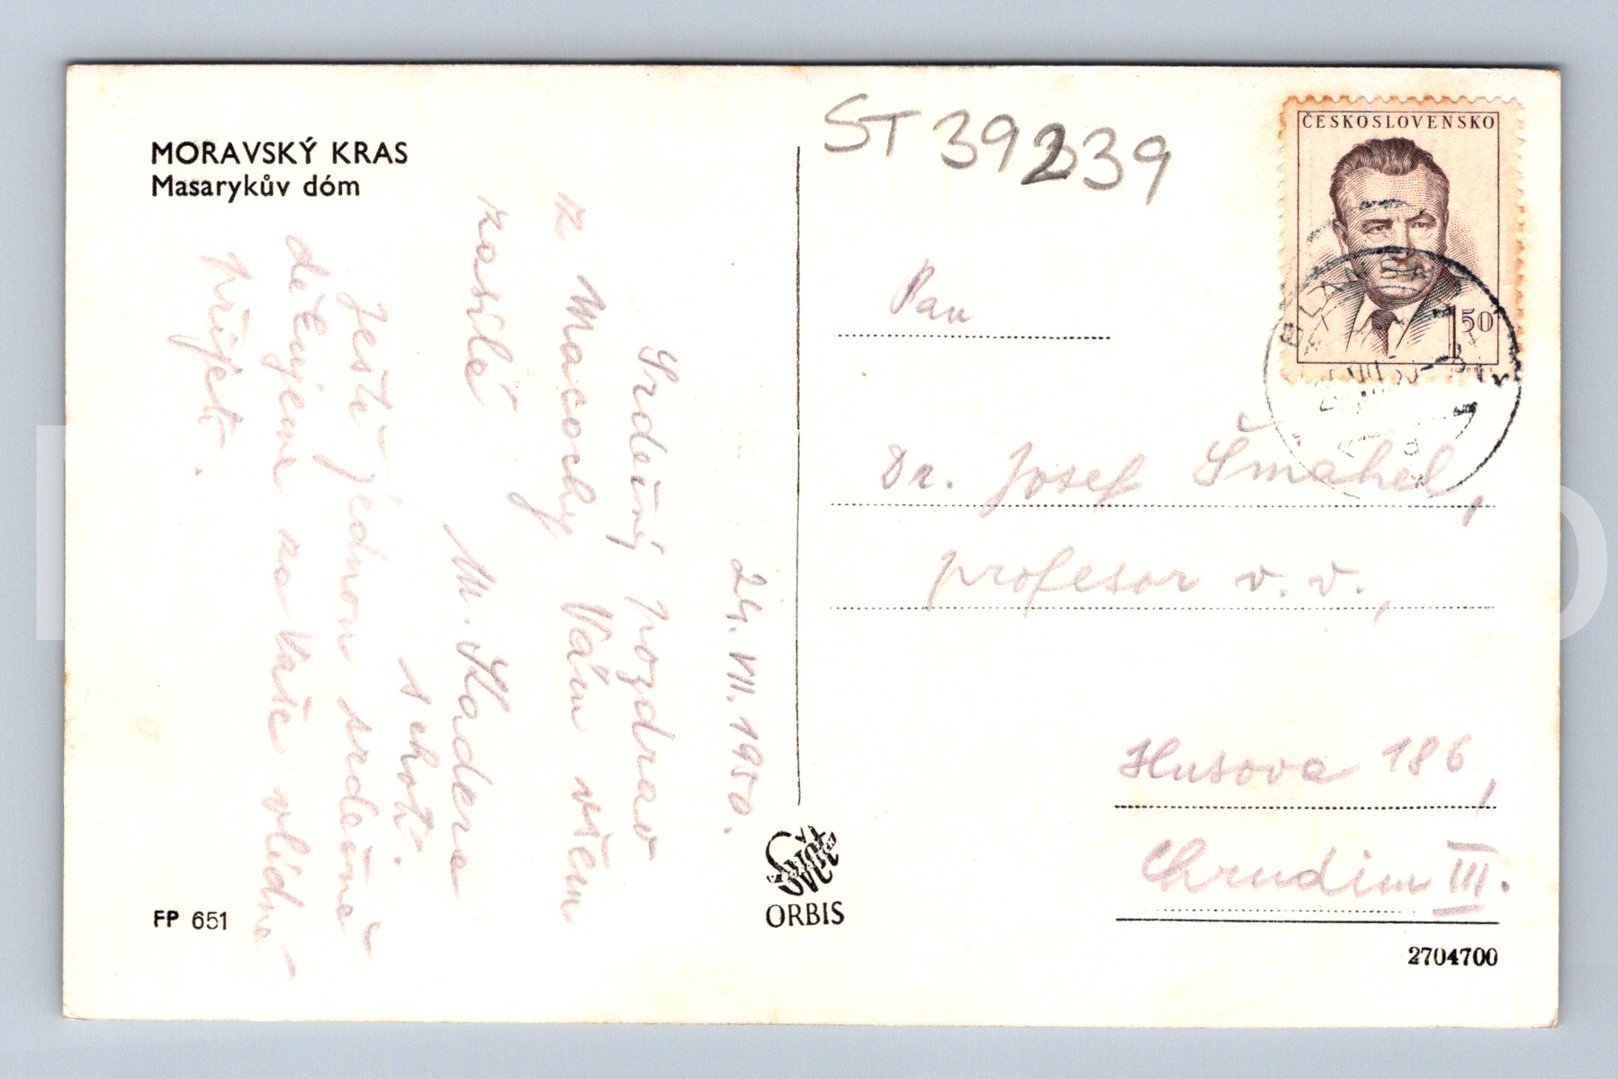 MORAVSKÝ KRAS
Masarykův dóm
24. VII. 1950.
Srdečný pozdrav
z Macochy Vám všem
zasílé
M. Kladera
s chotí.
Ještě jednou srdečně
děkujeme za Vaše vlídné
přijetí.
FP 651
ORBIS
ST 39239
ČESKOSLOVENSKO
1 50
BLANSKO
Pan
Dr. Josef Šmahel,
profesor v. v.,
Husova 186,
Chrudim III.
2704700